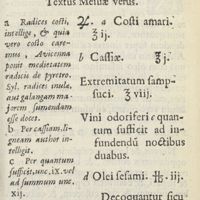 Textus Mesuæ verus.
a Radices costi,
intellige, & quia
vero costo care-
mus, Avicenna
ponit medietatem
radicis de pyretro.
Syl. radices inula,
aut galangam ma-
jorem sumendam
esse docet.
b Per cassiam, li-
gneam author in-
telligit.
c Per quantum
sufficit, unc. ix. vel
ad summum unc.
xij.
♃. a Costi amari.
℥ ij.
b Cassiæ. ℥ j.
Extremitatum samp-
suci. ℥ viij.
Vini odoriferi c quan-
tum sufficit ad in-
fundendũ noctibus
duabus.
d Olei sesami. ℔. iij.
Decoquantur sicu